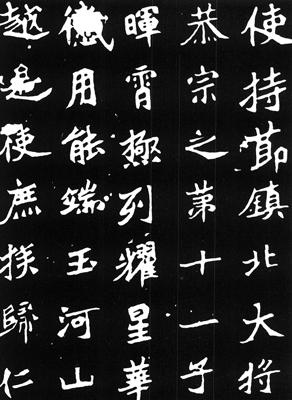 使持節鎮北大將
恭宗之第十一子
暉霄極列耀星華
徽用能端玉河山
越是使庶族歸仁